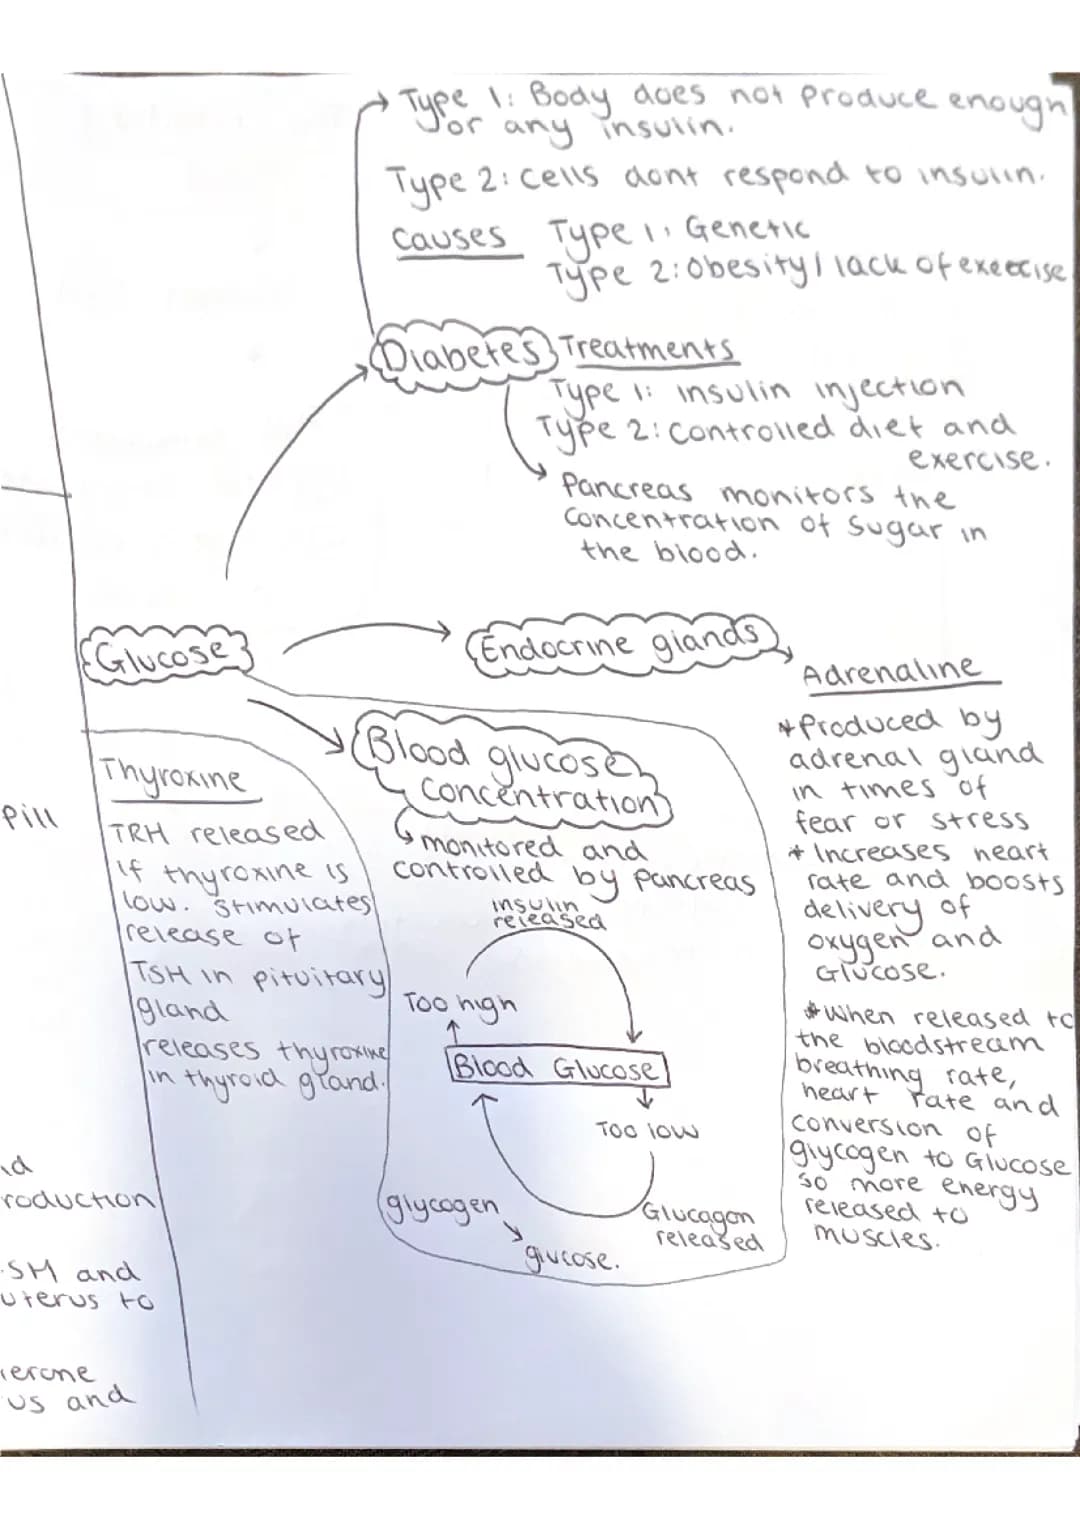 Type 1: Body does not produce enough
or any insulin.
Type 2: cells dont respond to insulin.
causes Type 1: Genetic
Type 2: Obesity / lack of exercise
Diabetes
Treatments
Type 1: insulin injection
Type 2: controlled diet and
exercise.
Pancreas monitors the
concentration of sugar in
the blood.
Glucose
Endocrine glands
Adrenaline
*Produced by
adrenal gland
in times of
fear or stress
* Increases heart
rate and boosts
delivery of
oxygen and
Glucose.
*When released to
the bloodstream
breathing rate,
heart rate and
conversion of
glycogen to Glucose
so more energy
released to
muscles.
Blood glucose
concentration
monitored and
controlled by pancreas
insulin
released
Too high
Blood Glucose
Too low
Glucagon
released
glycogen
glucose.
Thyroxine
TRH released
if thyroxine is
low. stimulates
release of
TSH in pituitary
gland
releases thyroxine
in thyroid gland.
Pill
roduction
SH and
uterus to
erone
us and